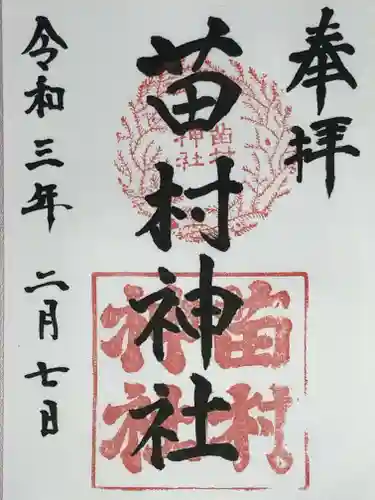 奉拝
苗村神社
苗村
神社
苗村
神社
令和三年 二月七日